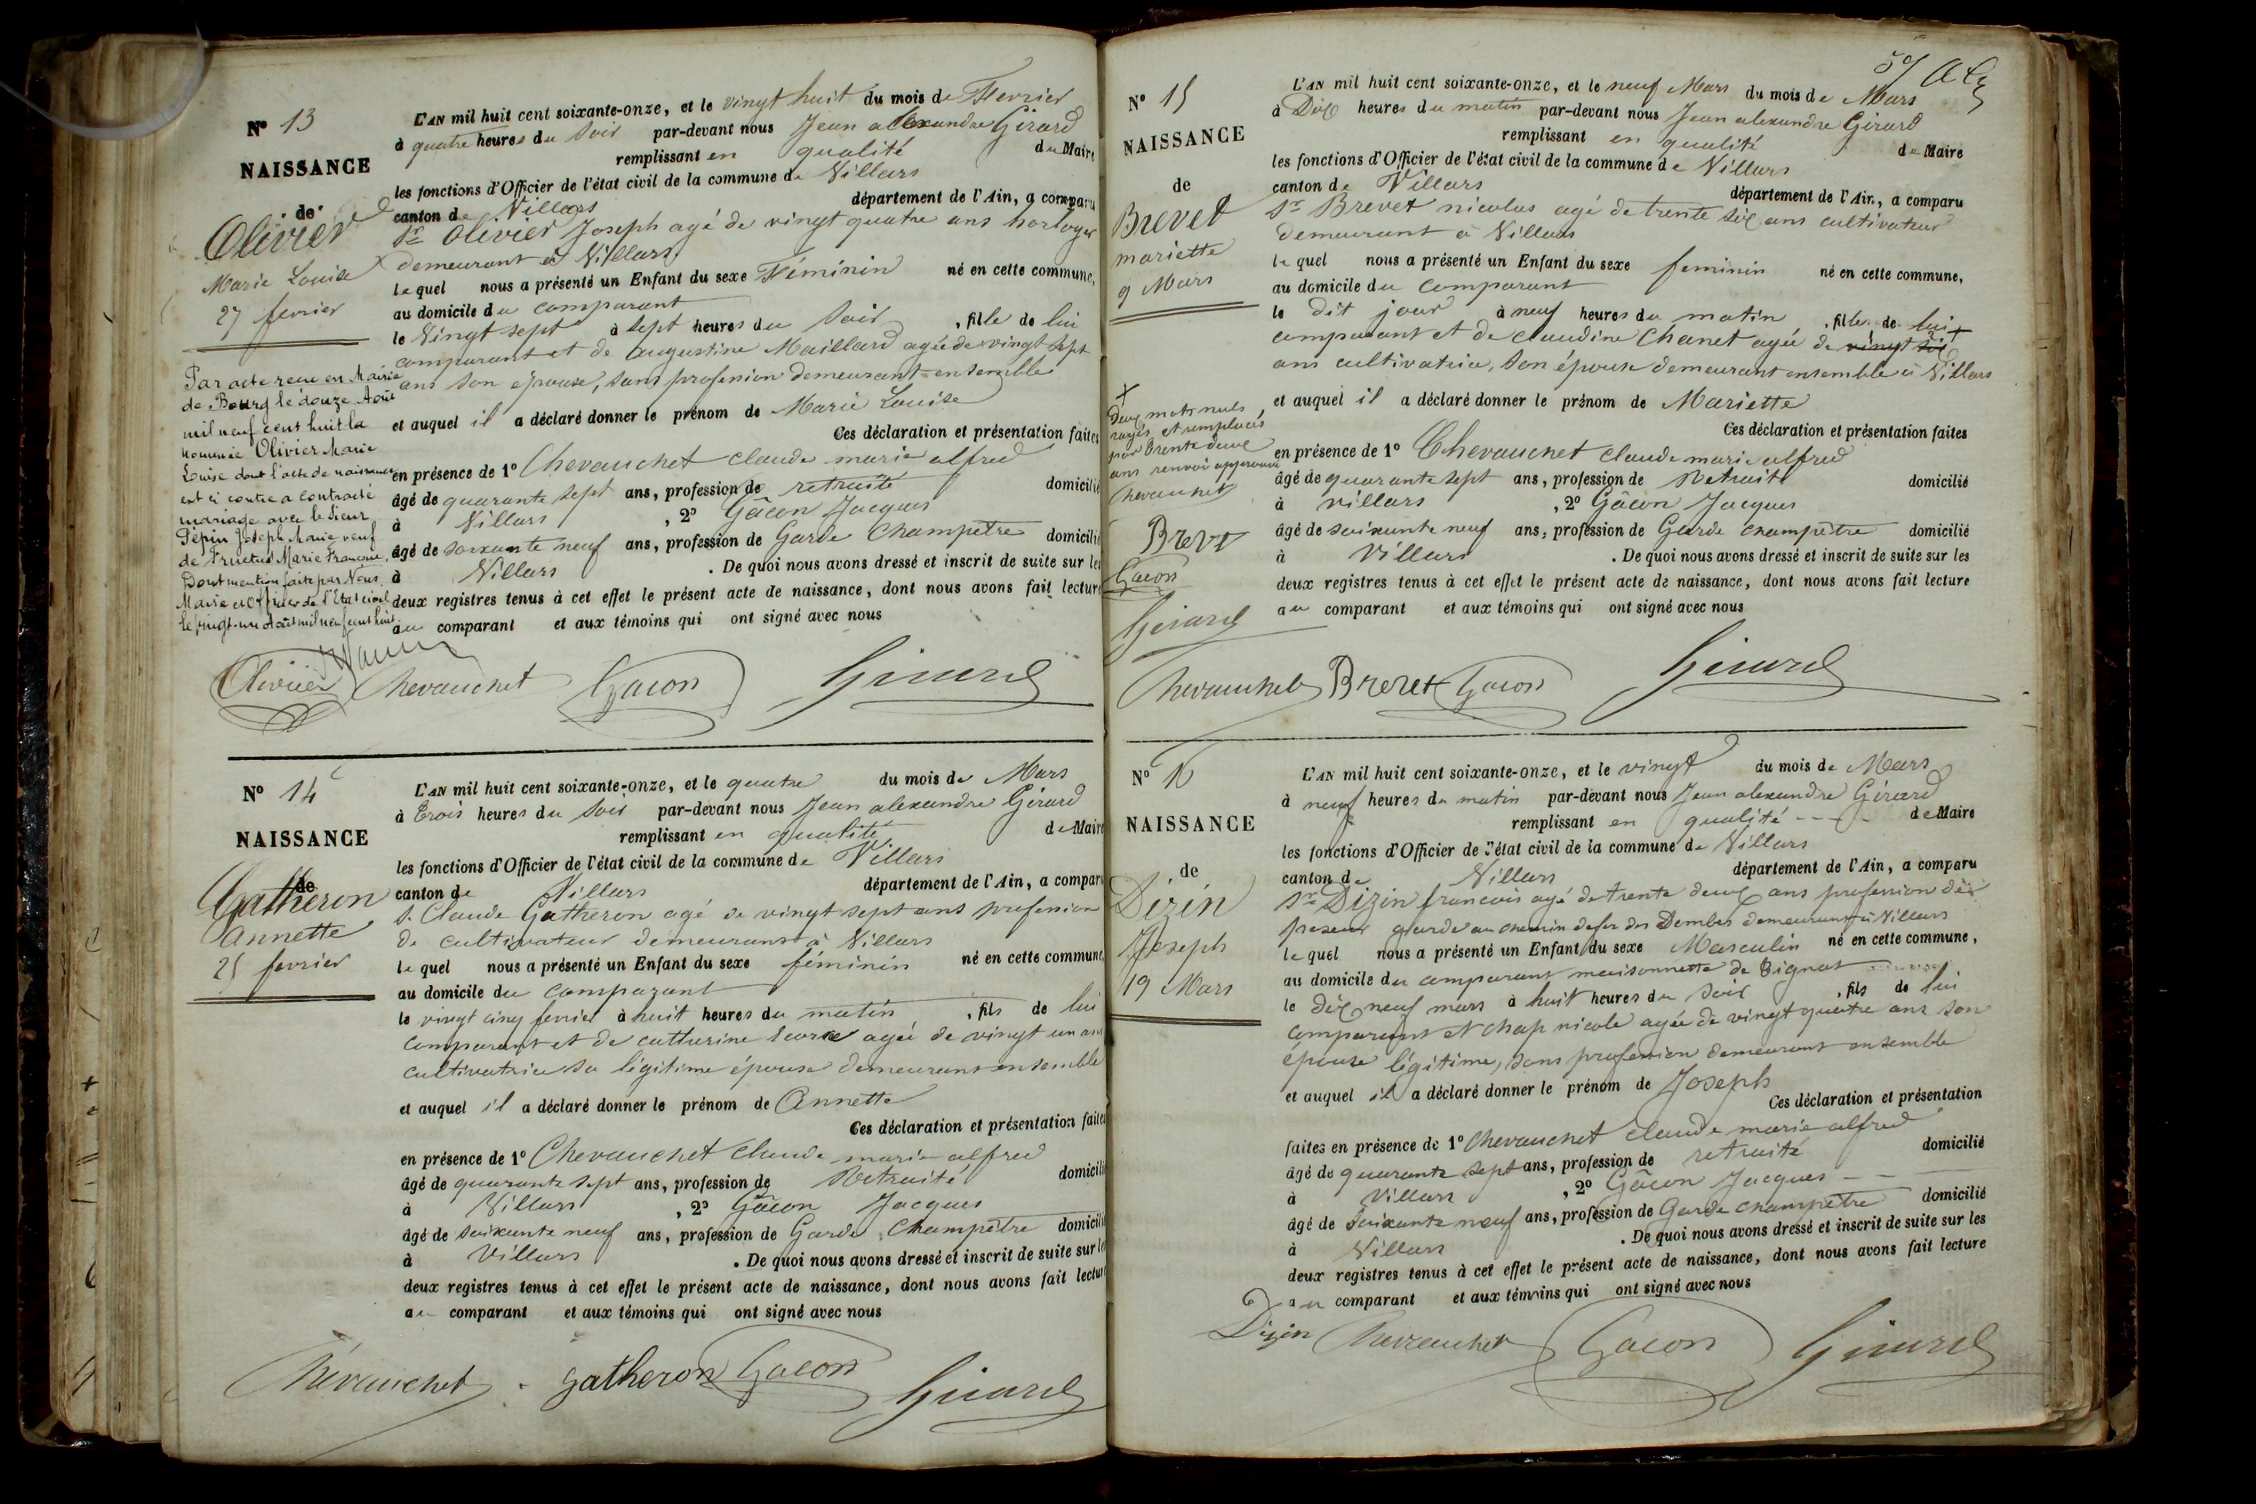 Nº 13
NAISSANCE
de
Olivier
Marie Louise
27 fevrier
L'AN mil huit cent soixante-onze, et le vingt huit du mois de Fevrier
à quatre heures du Soir par-devant nous Jean alexandre Girard
remplissant en qualité de Maire
les fonctions d'Officier de l'état civil de la commune de Villars
canton de Villars département de l'Ain, a comparu
Sr Olivier Joseph agé de vingt quatre ans horloger
demeurant à Villars
lequel nous a présenté un Enfant du sexe Féminin né en cette commune,
au domicile du comparant
le Vingt sept à sept heures du Soir, fille de lui
comparant et de augustine Maillard agée de vingt sept
ans son épouse, sans profession demeurant ensemble
et auquel il a déclaré donner le prénom de Marie Louise
Ces déclaration et présentation faites
en présence de 1º Chevauchet claude marie alfred
âgé de quarante sept ans, profession de retraité domicilié
à Villars, 2º Gâcon Jacques
âgé de soixante neuf ans, profession de Garde Champêtre domicilié
à Villars. De quoi nous avons dressé et inscrit de suite sur les
deux registres tenus à cet effet le présent acte de naissance, dont nous avons fait lecture
au comparant et aux témoins qui ont signé avec nous
Par acte recu en Mairie
de Bourg le douze Août
mil neuf cent huit la
nommée Olivier Marie
Louise dont l'acte de naissance
est ci contre a contracté
mariage avec le sieur
Pépin Joseph Marie veuf
de Marie Françoise
Dont mention faite par Nous
Maire et Officier de l'Etat civil
le vingt-un Août mil neuf cent huit
Olivier Chevauchet Gacon Girard
Nº 14
NAISSANCE
de
Gatheron
Annette
25 fevrier
L'AN mil huit cent soixante-onze, et le quatre du mois de Mars
à Trois heures du Soir par-devant nous Jean alexandre Girard
remplissant en qualité de Maire
les fonctions d'Officier de l'état civil de la commune de Villars
canton de Villars département de l'Ain, a comparu
S. Claude Gatheron agé de vingt sept ans profession
de cultivateur demeurant à Villars
lequel nous a présenté un Enfant du sexe féminin né en cette commune,
au domicile du comparant
le vingt cinq fevrier à huit heures du matin, fils de lui
comparant et de catherine agée de vingt un ans
cultivatrice sa légitime épouse demeurant ensemble
et auquel il a déclaré donner le prénom de Annette
Ces déclaration et présentation faites
en présence de 1º Chevauchet Claude marie alfred
âgé de quarante sept ans, profession de Retraité domicilié
à Villars, 2º Gâcon Jacques
âgé de soixante neuf ans, profession de Garde Champêtre domicilié
à Villars. De quoi nous avons dressé et inscrit de suite sur les
deux registres tenus à cet effet le présent acte de naissance, dont nous avons fait lecture
au comparant et aux témoins qui ont signé avec nous
Chevauchet gatheron Gacon Girard
Nº 15
NAISSANCE
de
Brevet
mariette
9 Mars
L'AN mil huit cent soixante-onze, et le neuf Mars du mois de Mars
à Dix heures du matin par-devant nous Jean alexandre Girard
remplissant en qualité de Maire
les fonctions d'Officier de l'état civil de la commune de Villars
canton de Villars département de l'Ain, a comparu
Sr Brevet nicolas agé de trente six ans cultivateur
demeurant à Villars
lequel nous a présenté un Enfant du sexe feminin né en cette commune,
au domicile du comparant
le dit jour à neuf heures du matin, fille de lui
comparant et de claudine Chanet agée de vingt six +
ans cultivatrice, son épouse demeurant ensemble à Villars
et auquel il a déclaré donner le prénom de Mariette
Ces déclaration et présentation faites
en présence de 1º Chevauchet claude marie alfred
âgé de quarante sept ans, profession de Retraité domicilié
à villars, 2º Gâcon Jacques
âgé de soixante neuf ans, profession de Garde champêtre domicilié
à Villars. De quoi nous avons dressé et inscrit de suite sur les
deux registres tenus à cet effet le présent acte de naissance, dont nous avons fait lecture
au comparant et aux témoins qui ont signé avec nous
+
Deux mots nuls,
rayés et remplacés
par trente deux
ans renvoi approuvé
Chevauchet
Brevet
Gacon
Girard
Chevauchet Brevet Gacon Girard
Nº 16
NAISSANCE
de
Dizin
Joseph
19 Mars
L'AN mil huit cent soixante-onze, et le vingt du mois de Mars
à neuf heures du matin par-devant nous Jean alexandre Girard
remplissant en qualité de Maire
les fonctions d'Officier de l'état civil de la commune de Villars
canton de Villars département de l'Ain, a comparu
Sr Dizin francois agé de trente deux ans profession
garde au chemin de fer des Dombes demeurant à Villars
lequel nous a présenté un Enfant du sexe Masculin né en cette commune,
au domicile du comparant maisonnette de
le dix neuf mars à huit heures du Soir, fils de lui
comparant et chap nicole agée de vingt quatre ans son
épouse légitime, sans profession demeurant ensemble
et auquel il a déclaré donner le prénom de Joseph
Ces déclaration et présentation
faites en présence de 1º Chevauchet claude marie alfred
âgé de quarante sept ans, profession de retraité domicilié
à Villars, 2º Gâcon Jacques
âgé de soixante neuf ans, profession de Garde champêtre domicilié
à Villars. De quoi nous avons dressé et inscrit de suite sur les
deux registres tenus à cet effet le présent acte de naissance, dont nous avons fait lecture
au comparant et aux témoins qui ont signé avec nous
Dizin Chevauchet Gacon Girard